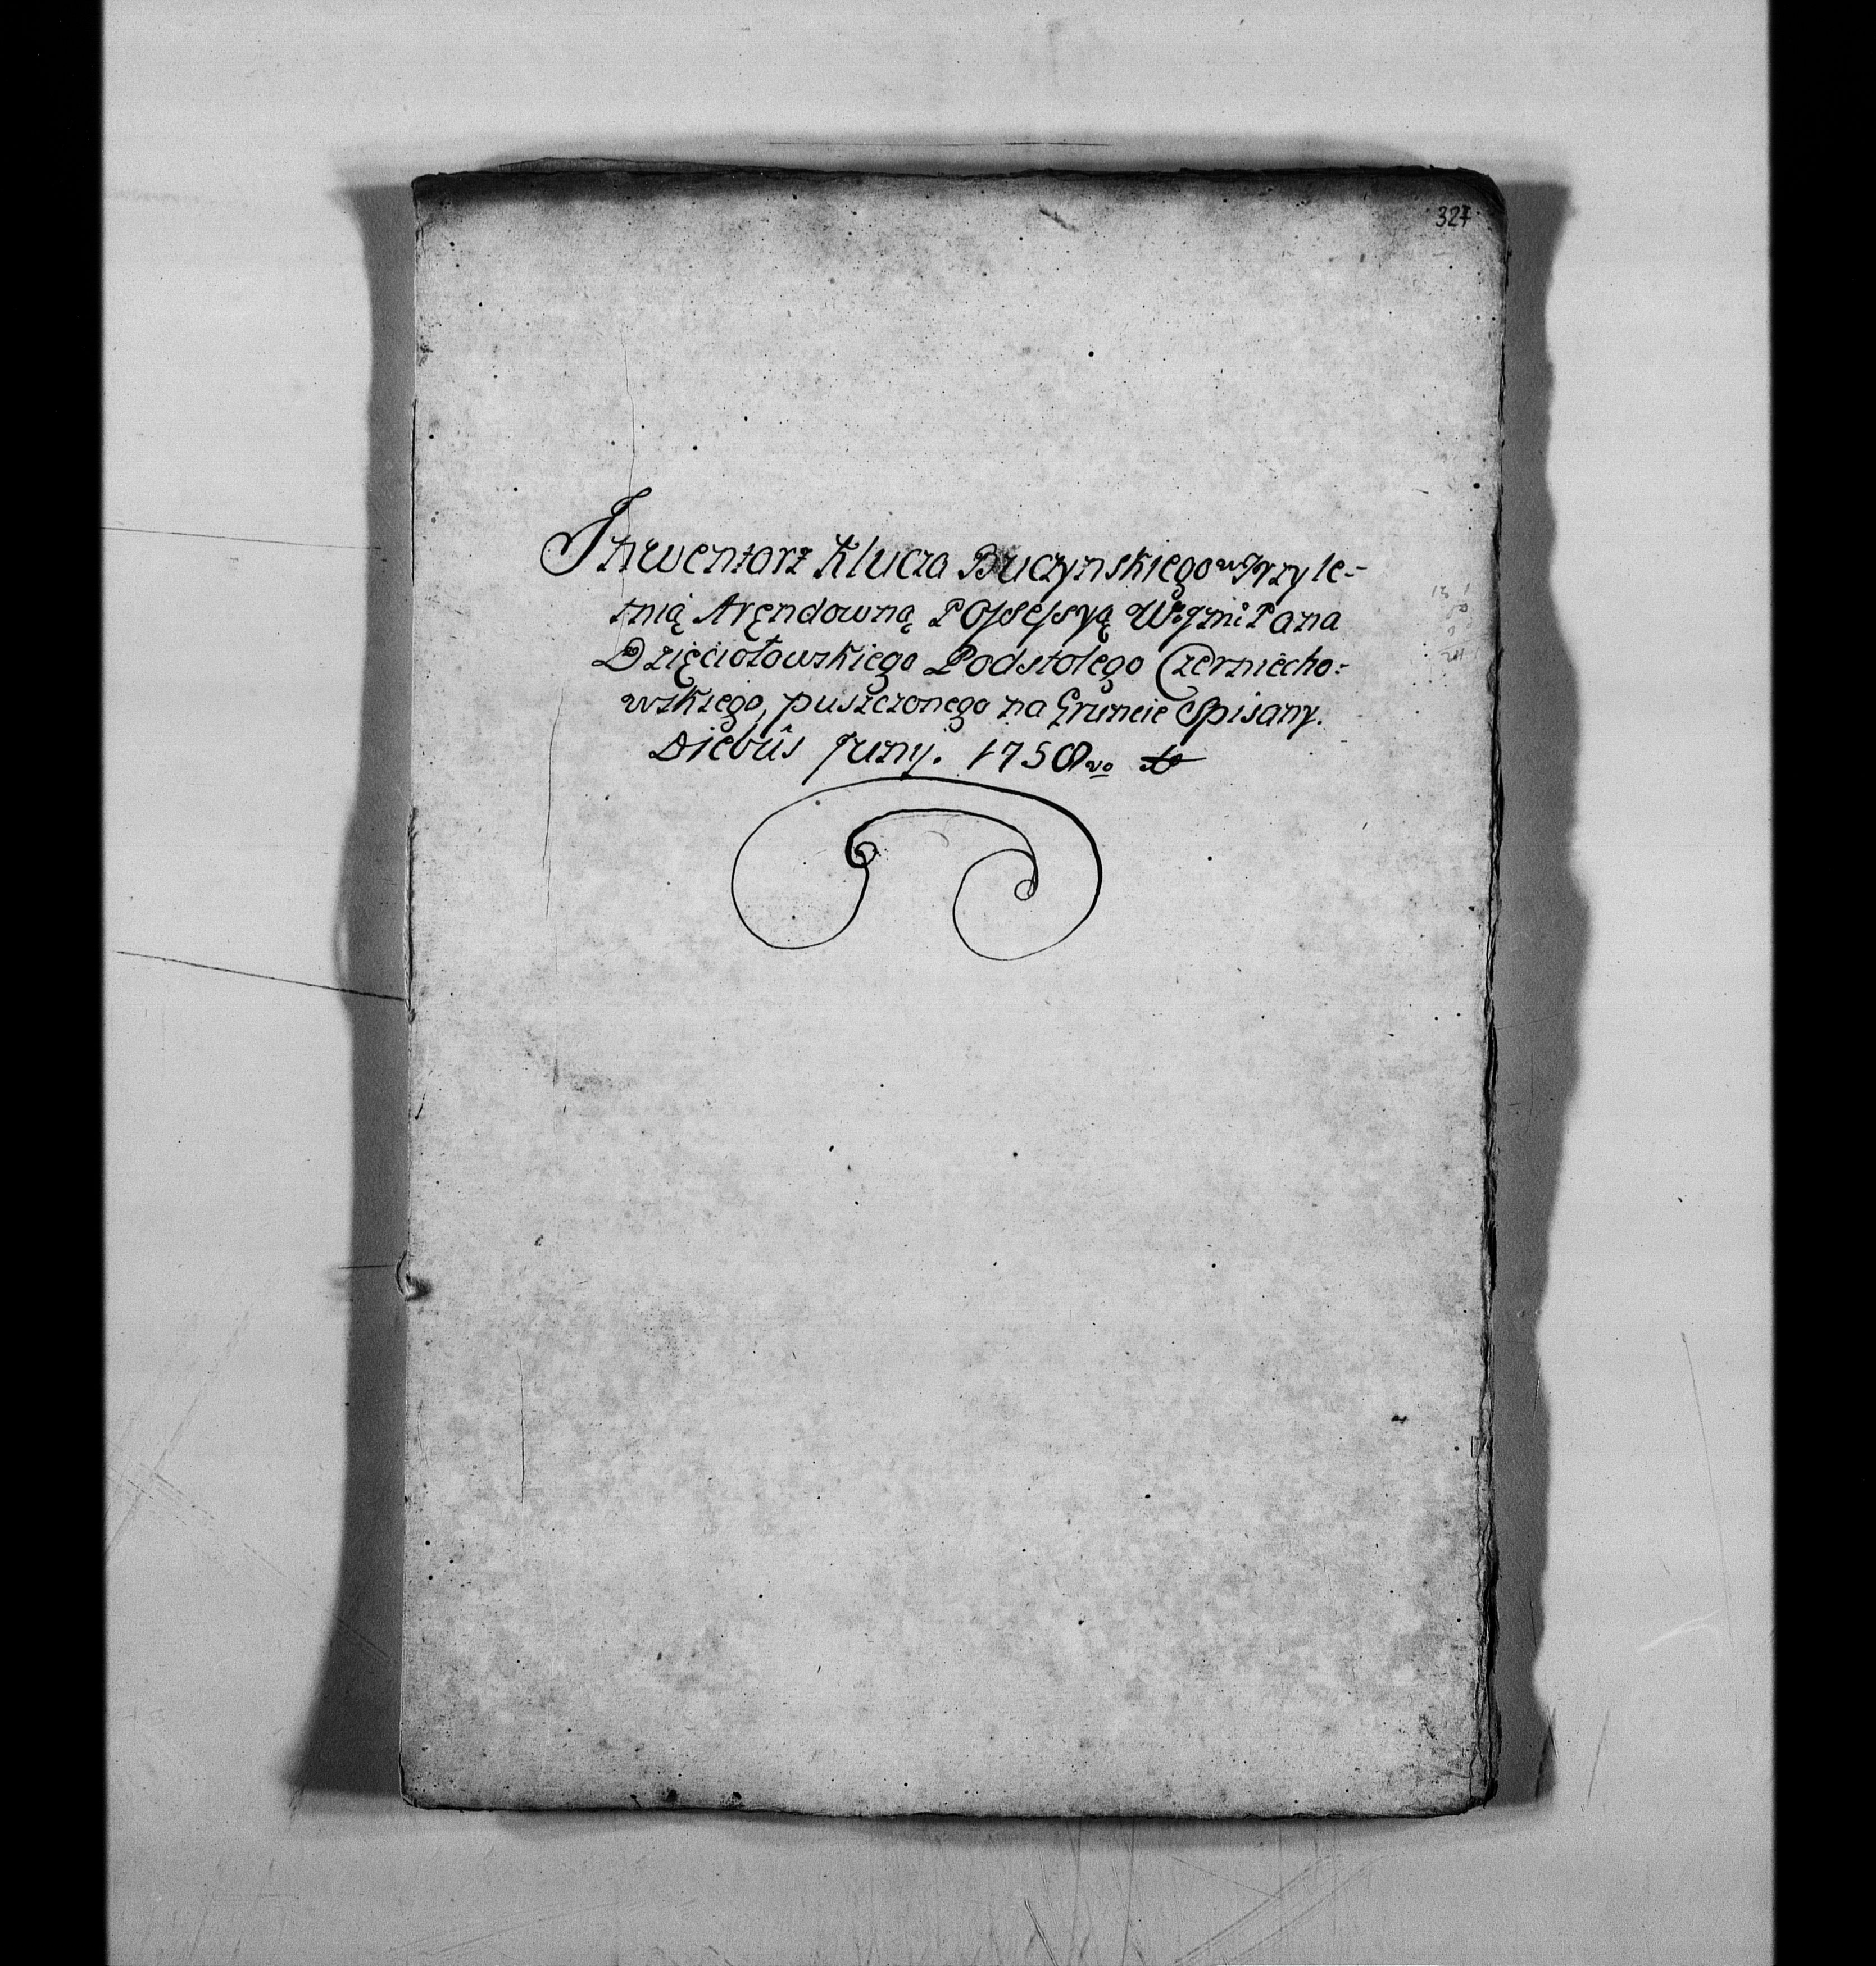 327
Inwentarz Klucza Buczynskiego w Trzyle-
tnią Aręndowną Possessyą Wo Jmci Pana
Dzięciołowskiego Podstolego Czerniecho-
wskiego, puszczonego na Gruncie Spisany.
Diebûs Junij. 1758vo